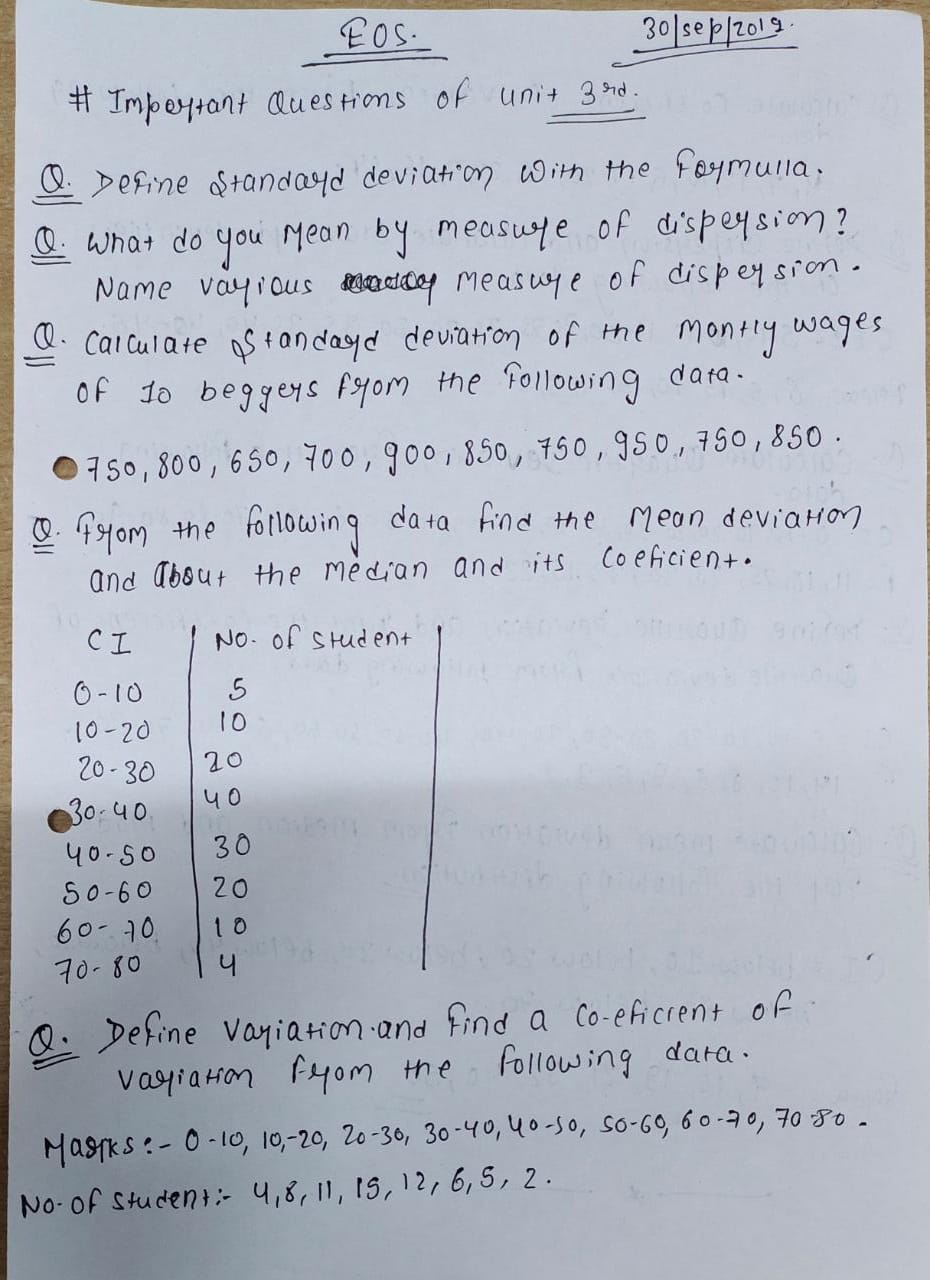 EOS.
30/sep/2019.
# Important Questions of unit 3rd.
Q. Define Standard deviation with the formulla.
Q. What do you mean by measure of dispersion?
Name various measure of dispersion.
Q. Calculate Standard deviation of the montly wages
of 10 beggers from the following data.
750, 800, 650, 700, 900, 850, 750, 950, 750, 850.
Q. From the following data find the mean deviation
and about the median and its coeficient.
CI No. of student
0-10 5
10-20 10
20-30 20
30-40 40
40-50 30
50-60 20
60-70 10
70-80 4
Q. Define variation and find a co-eficient of
variation from the following data.
Marks :- 0-10, 10-20, 20-30, 30-40, 40-50, 50-60, 60-70, 70-80.
No. of student :- 4, 8, 11, 15, 12, 6, 5, 2.